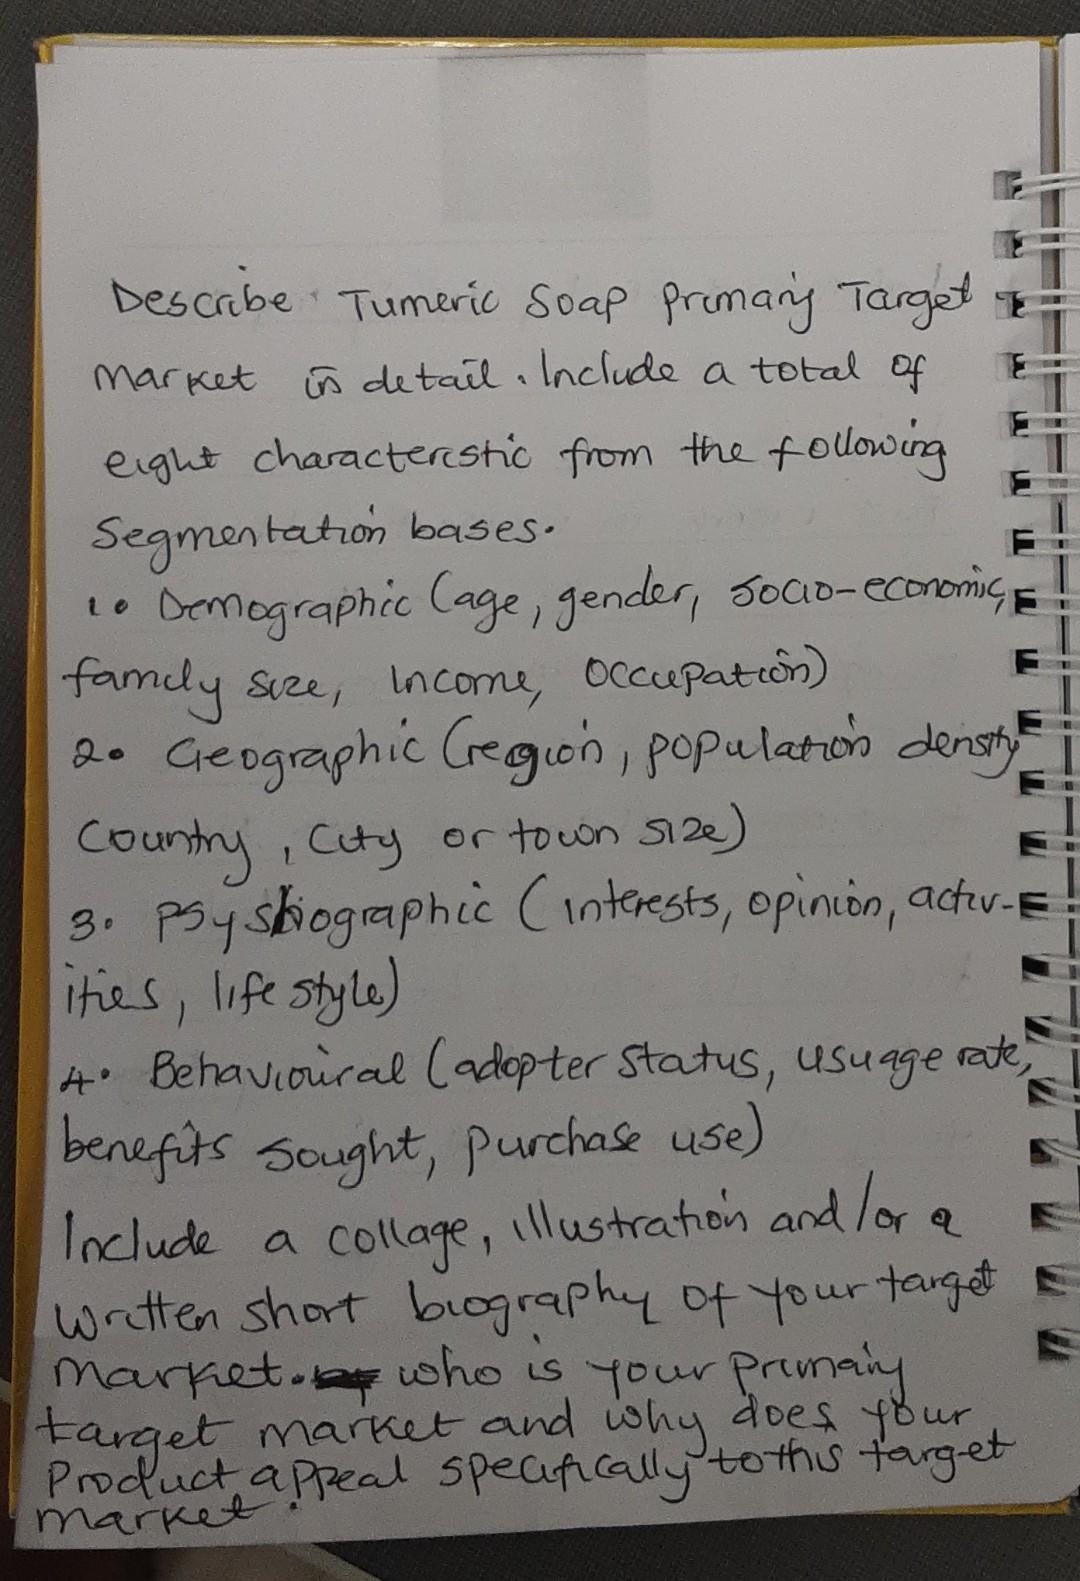 Describe Tumeric Soap primary Target
market in detail. Include a total of
eight characterestic from the following
Segmentation bases.
1. Demographic (age, gender, socio-economic,
family size, income, occupation)
2. Geographic (region, population density
Country, City or town size)
3. Psyshiographic (interests, opinion, activ-
ities, life style)
4. Behavioural (adopter status, usuage rate,
benefits sought, purchase use)
Include a collage, illustration and/or a
written short biography of your target
market. who is your primary
target market and why does your
Product appeal specifically to this target
market.